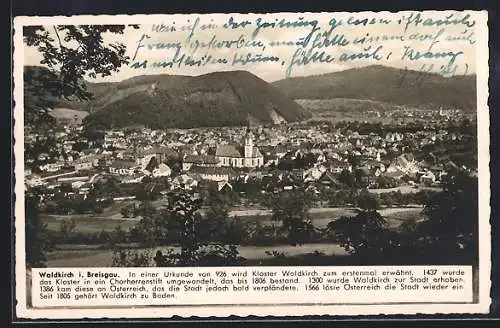 Wie ich in der Zeitung gelesen ist auch
Franz gestorben, man hätte ihm auch
Waldkirch i. Breisgau. In einer Urkunde von 926 wird Kloster Waldkirch zum erstenmal erwähnt. 1437 wurde
das Kloster in ein Chorherrenstift umgewandelt, das bis 1806 bestand. 1300 wurde Waldkirch zur Stadt erhoben.
1386 kam diese an Österreich, das die Stadt jedoch bald verpfändete. 1566 löste Österreich die Stadt wieder ein.
Seit 1805 gehört Waldkirch zu Baden.